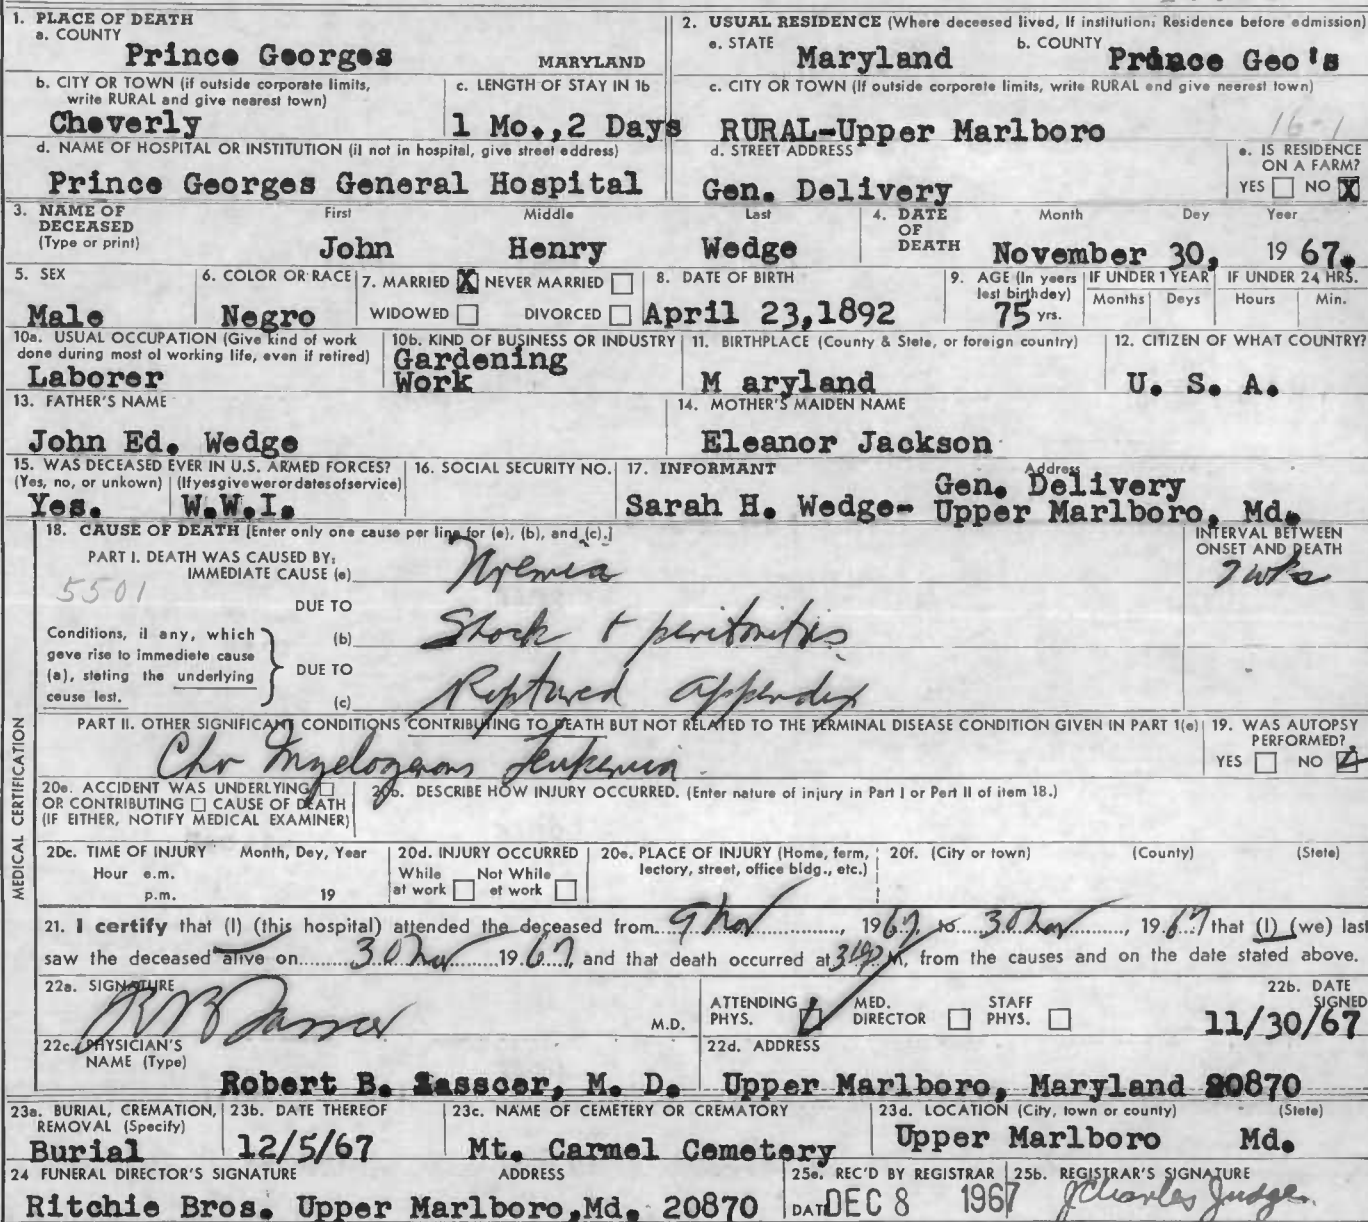 1. PLACE OF DEATH
a. COUNTY
Prince Georges MARYLAND
2. USUAL RESIDENCE (Where deceased lived, If institution: Residence before admission)
a. STATE Maryland b. COUNTY Prince Geo's
b. CITY OR TOWN (if outside corporate limits, write RURAL and give nearest town)
Cheverly
c. LENGTH OF STAY IN 1b
1 Mo.,2 Days
c. CITY OR TOWN (If outside corporate limits, write RURAL and give nearest town)
RURAL-Upper Marlboro
16-1
d. NAME OF HOSPITAL OR INSTITUTION (if not in hospital, give street address)
Prince Georges General Hospital
d. STREET ADDRESS
Gen. Delivery
e. IS RESIDENCE ON A FARM?
YES NO X
3. NAME OF DECEASED (Type or print)
First Middle Last
John Henry Wedge
4. DATE OF DEATH
Month Day Year
November 30, 19 67.
5. SEX
Male
6. COLOR OR RACE
Negro
7. MARRIED X NEVER MARRIED
WIDOWED DIVORCED
8. DATE OF BIRTH
April 23,1892
9. AGE (In years last birthday)
75 yrs.
IF UNDER 1 YEAR
Months Days
IF UNDER 24 HRS.
Hours Min.
10a. USUAL OCCUPATION (Give kind of work done during most of working life, even if retired)
Laborer
10b. KIND OF BUSINESS OR INDUSTRY
Gardening
Work
11. BIRTHPLACE (County & State, or foreign country)
M aryland
12. CITIZEN OF WHAT COUNTRY?
U. S. A.
13. FATHER'S NAME
John Ed. Wedge
14. MOTHER'S MAIDEN NAME
Eleanor Jackson
15. WAS DECEASED EVER IN U.S. ARMED FORCES?
(Yes, no, or unkown) (If yes give wer or dates of service)
Yes. W.W.I.
16. SOCIAL SECURITY NO.
17. INFORMANT Address
Sarah H. Wedge- Gen. Delivery
Upper Marlboro, Md.
18. CAUSE OF DEATH [Enter only one cause per line for (a), (b), and (c).]
INTERVAL BETWEEN ONSET AND DEATH
PART I. DEATH WAS CAUSED BY:
IMMEDIATE CAUSE (a) Uremia
5501
DUE TO
(b) Shock + peritonitis
Conditions, if any, which gave rise to immediate cause (a), stating the underlying cause last.
DUE TO
(c) Ruptured appendix
PART II. OTHER SIGNIFICANT CONDITIONS CONTRIBUTING TO DEATH BUT NOT RELATED TO THE TERMINAL DISEASE CONDITION GIVEN IN PART 1(a)
Chr Myelogenous Leukemia
19. WAS AUTOPSY PERFORMED?
YES NO
20a. ACCIDENT WAS UNDERLYING
OR CONTRIBUTING CAUSE OF DEATH
(IF EITHER, NOTIFY MEDICAL EXAMINER)
20b. DESCRIBE HOW INJURY OCCURRED. (Enter nature of injury in Part I or Part II of item 18.)
20c. TIME OF INJURY Month, Day, Year
Hour a.m.
p.m. 19
20d. INJURY OCCURRED
While at work Not While at work
20e. PLACE OF INJURY (Home, farm, factory, street, office bldg., etc.)
20f. (City or town) (County) (State)
MEDICAL CERTIFICATION
21. I certify that (I) (this hospital) attended the deceased from 9 Nov, 1967, to 30 Nov, 1967 that (I) (we) last
saw the deceased alive on 30 Nov 1967, and that death occurred at M, from the causes and on the date stated above.
22a. SIGNATURE
M.D.
ATTENDING PHYS. MED. DIRECTOR STAFF PHYS.
22b. DATE SIGNED
11/30/67
22c. PHYSICIAN'S NAME (Type)
Robert B. Sasscer, M. D.
22d. ADDRESS
Upper Marlboro, Maryland 20870
23a. BURIAL, CREMATION, REMOVAL (Specify)
Burial
23b. DATE THEREOF
12/5/67
23c. NAME OF CEMETERY OR CREMATORY
Mt. Carmel Cemetery
23d. LOCATION (City, town or county) (State)
Upper Marlboro Md.
24 FUNERAL DIRECTOR'S SIGNATURE ADDRESS
Ritchie Bros. Upper Marlboro,Md. 20870
25a. REC'D BY REGISTRAR
DATE DEC 8 1967
25b. REGISTRAR'S SIGNATURE
J Charles Judge